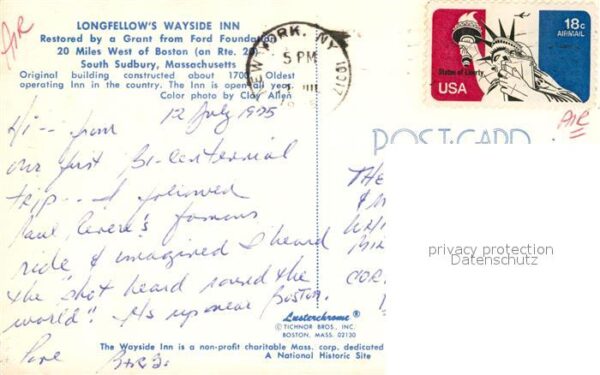 LONGFELLOW'S WAYSIDE INN
Restored by a Grant from Ford Foundation
20 Miles West of Boston (on Rte. 20)
South Sudbury, Massachusetts
Original building constructed about 1700. Oldest
operating Inn in the country. The Inn is open all year.
Color photo by Clay Allen
AIR
NEW YORK, NY
5 PM
18c
AIRMAIL
Statue of Liberty
USA
AIR
POST CARD
12 July 1975
Hi -- from
our first Bi-centennial
trip -- I followed
Paul Revere's famous
ride & imagined I heard
the "shot heard round the
world". It's up near Boston.
THE
COR.
privacy protection
Datenschutz
Lusterchrome®
© TICHNOR BROS., INC.
BOSTON, MASS. 02130
The Wayside Inn is a non-profit charitable Mass. corp. dedicated
A National Historic Site